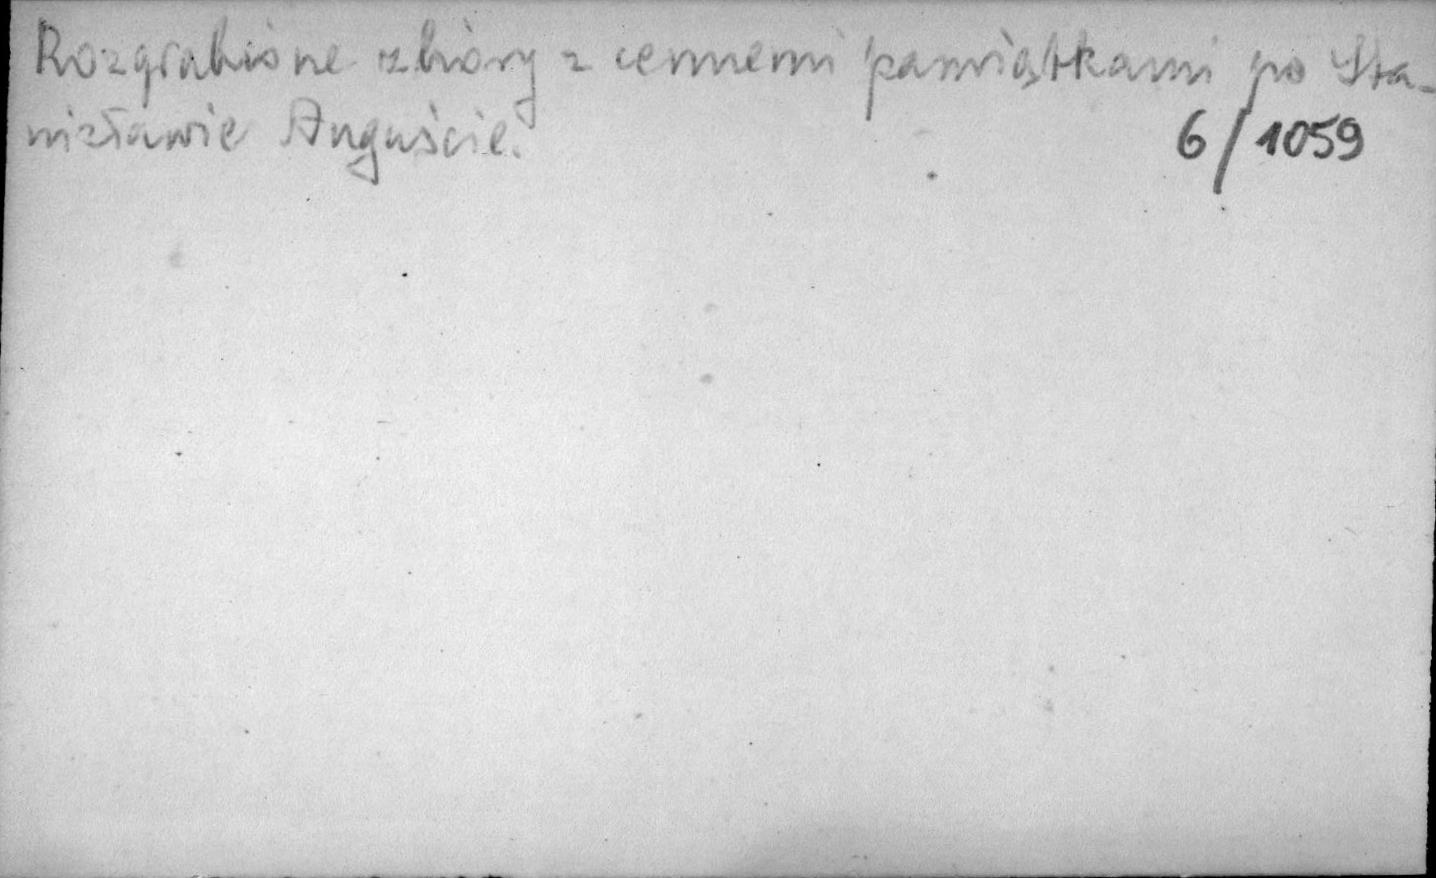 Rozgrabione zbiory z cennemi pamiątkami po Sta-
nisławie Auguście.
6/1059